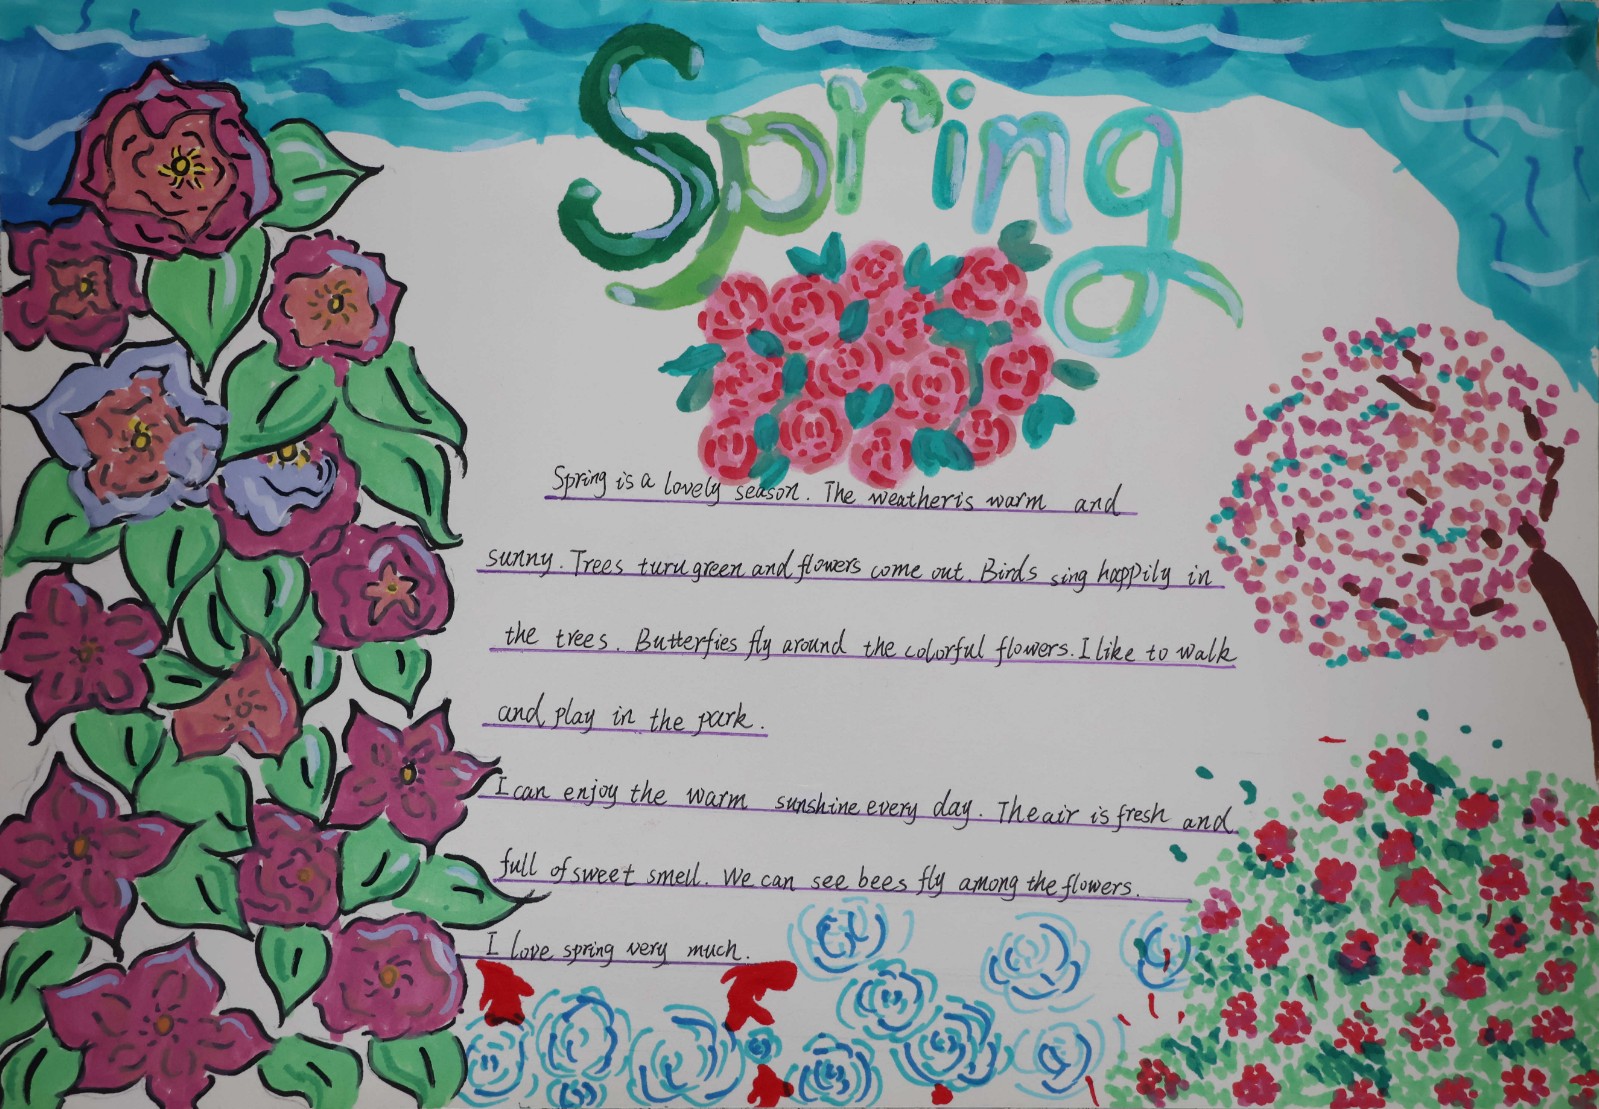 Spring
Spring is a lovely season. The weather is warm and
sunny. Trees turu green and flowers come out. Birds sing happily in
the trees. Butterfies fly around the colorful flowers. I like to walk
and play in the park.
I can enjoy the warm sunshine every day. The air is fresh and
full of sweet smell. We can see bees fly among the flowers.
I love spring very much.